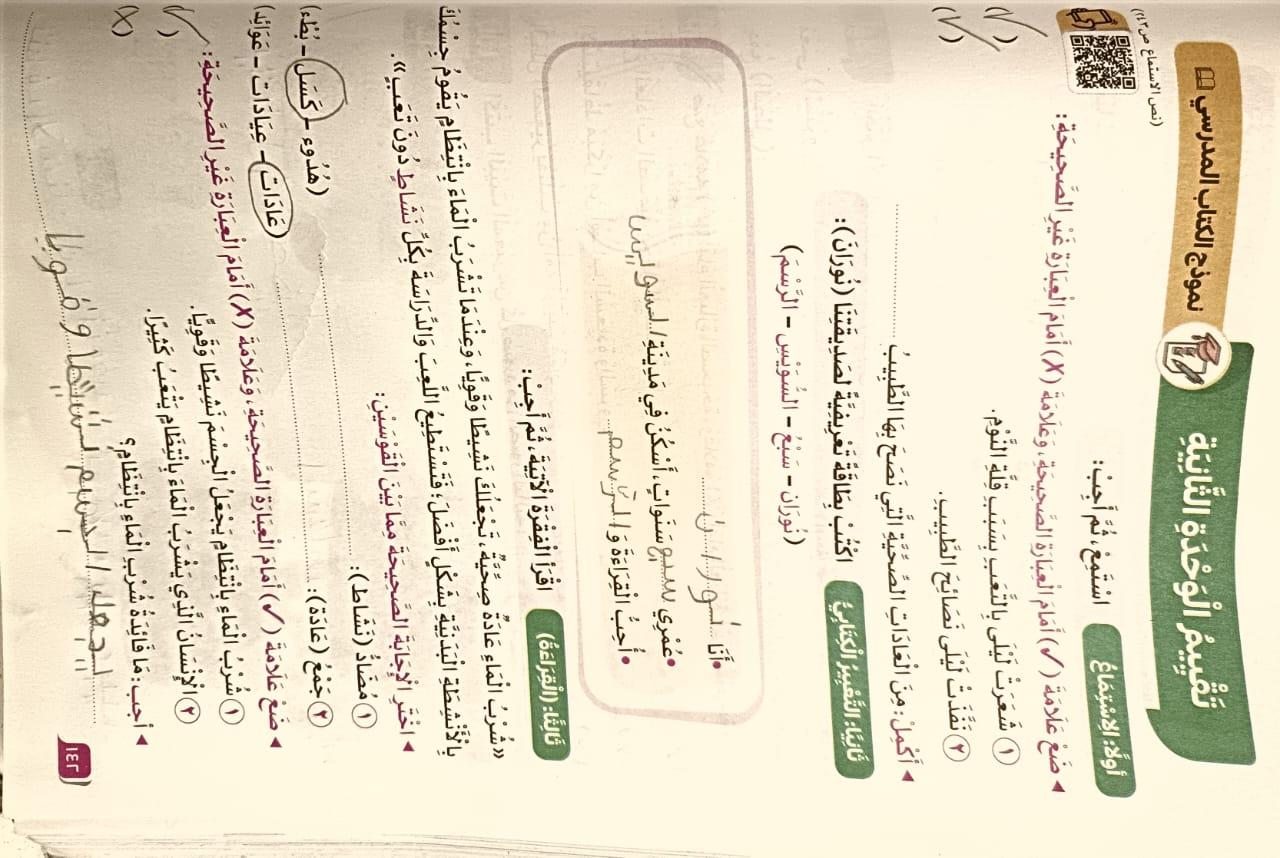 نموذج الكتاب المدرسي
تَقْيِيمُ الْوَحْدَةِ الثَّانِيَةِ
(نص الاستماع ص١٤٣)
أَوَّلًا: الِاسْتِمَاعُ
اسْتَمِعْ، ثُمَّ أَجِبْ:
◄ ضَعْ عَلَامَةَ (✓) أَمَامَ الْعِبَارَةِ الصَّحِيحَةِ، وَعَلَامَةَ (X) أَمَامَ الْعِبَارَةِ غَيْرِ الصَّحِيحَةِ:
١ شَعَرَتْ لَيْلَى بِالتَّعَبِ بِسَبَبِ قِلَّةِ النَّوْمِ. (✓)
٢ نَفَّذَتْ لَيْلَى نَصَائِحَ الطَّبِيبِ. (✓)
◄ أَكْمِلْ: مِنَ الْعَادَاتِ الصِّحِّيَّةِ الَّتِي نَصَحَ بِهَا الطَّبِيبُ ........
ثَانِيًا: التَّعْبِيرُ الْكِتَابِيُّ
اكْتُبْ بِطَاقَةً تَعْرِيفِيَّةً لِصَدِيقَتِنَا (نُورَانَ):
(نُورَانَ - سَبْعُ - السُّوَيْسِ - الرَّسْمَ)
• أَنَا نوران
• عُمْرِي سبع سَنَوَاتٍ، أَسْكُنُ فِي مَدِينَةِ السويس
• أُحِبُّ الْقِرَاءَةَ وَ الرسم
ثَالِثًا: (الْقِرَاءَةُ)
اقْرَأِ الْفِقْرَةَ الْآتِيَةَ، ثُمَّ أَجِبْ:
«شُرْبُ الْمَاءِ عَادَةٌ صِحِّيَّةٌ، تَجْعَلُكَ نَشِيطًا وَقَوِيًّا، وَعِنْدَمَا تَشْرَبُ الْمَاءَ بِانْتِظَامٍ يَقُومُ جِسْمُكَ
بِالْأَنْشِطَةِ الْبَدَنِيَّةِ بِشَكْلٍ أَفْضَلَ؛ فَتَسْتَطِيعُ اللَّعِبَ وَالدِّرَاسَةَ بِكُلِّ نَشَاطٍ دُونَ تَعَبٍ».
◄ اخْتَرِ الْإِجَابَةَ الصَّحِيحَةَ مِمَّا بَيْنَ الْقَوْسَيْنِ:
١ مُضَادُّ (نَشَاط): ........ (هُدُوء - كَسَل - بُطْء)
٢ جَمْعُ (عَادَة): ........ (عَادَات - عِيَادَات - عَوَائِد)
◄ ضَعْ عَلَامَةَ (✓) أَمَامَ الْعِبَارَةِ الصَّحِيحَةِ، وَعَلَامَةَ (X) أَمَامَ الْعِبَارَةِ غَيْرِ الصَّحِيحَةِ:
١ شُرْبُ الْمَاءِ بِانْتِظَامٍ يَجْعَلُ الْجِسْمَ نَشِيطًا وَقَوِيًّا. (✓)
٢ الْإِنْسَانُ الَّذِي يَشْرَبُ الْمَاءَ بِانْتِظَامٍ يَتْعَبُ كَثِيرًا. (X)
◄ أَجِبْ: مَا فَائِدَةُ شُرْبِ الْمَاءِ بِانْتِظَامٍ؟
يجعل الجسم نشيطا وقويا
١٤٢